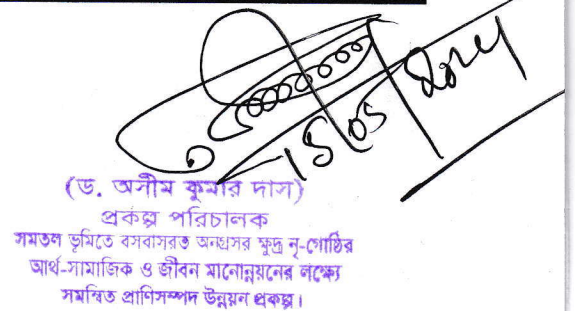 (ড. অসীম কুমার দাস)
প্রকল্প পরিচালক
সমতল ভূমিতে বসবাসরত অনগ্রসর ক্ষুদ্র নৃ-গোষ্ঠির
আর্থ-সামাজিক ও জীবন মানোন্নয়নের লক্ষ্যে
সমন্বিত প্রাণিসম্পদ উন্নয়ন প্রকল্প।